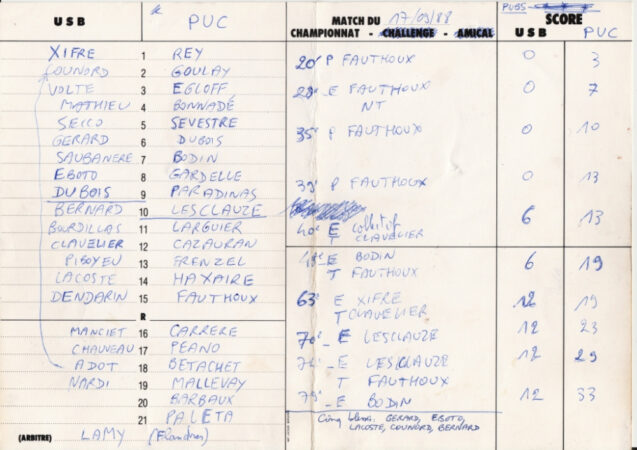 USB PUC
XIFRE 1 REY
COUNORD 2 GOULAY
VOLTE 3 EGLOFF
MATHIEU 4 BONNADÉ
SECCO 5 SEVESTRE
GERARD 6 DUBOIS
SAUBANERE 7 BODIN
EBOTO 8 GARDELLE
DUBOIS 9 PARADINAS
BERNARD 10 LESCLAUZE
BOURDILLAS 11 LARGUIER
CLAVELIER 12 CAZAURAN
PIBOYEU 13 FRENZEL
LACOSTE 14 HAXAIRE
DENDARIN 15 FAUTHOUX
R
MANCIET 16 CARRERE
CHAUVEAU 17 PEANO
ADOT 18 BETACHET
NARDI 19 MALLEVAY
20 BARBAUX
21 PALETA
(ARBITRE) LAMY (Flandres)
MATCH DU 17/09/88
CHAMPIONNAT - CHALLENGE - AMICAL
SCORE
USB PUC
20' P FAUTHOUX 0 3
E FAUTHOUX 0 7
NT
35' P FAUTHOUX 0 10
39' P FAUTHOUX 0 13
40' E Collectif 6 13
T CLAVELIER
E BODIN 6 19
T FAUTHOUX
63' E XIFRE 12 19
T CLAVELIER
70' E LESCLAUZE 12 23
E LESCLAUZE 12 29
T FAUTHOUX
E BODIN 12 33
Cinq GERARD, EBOTO,
LACOSTE, COUNORD, BERNARD